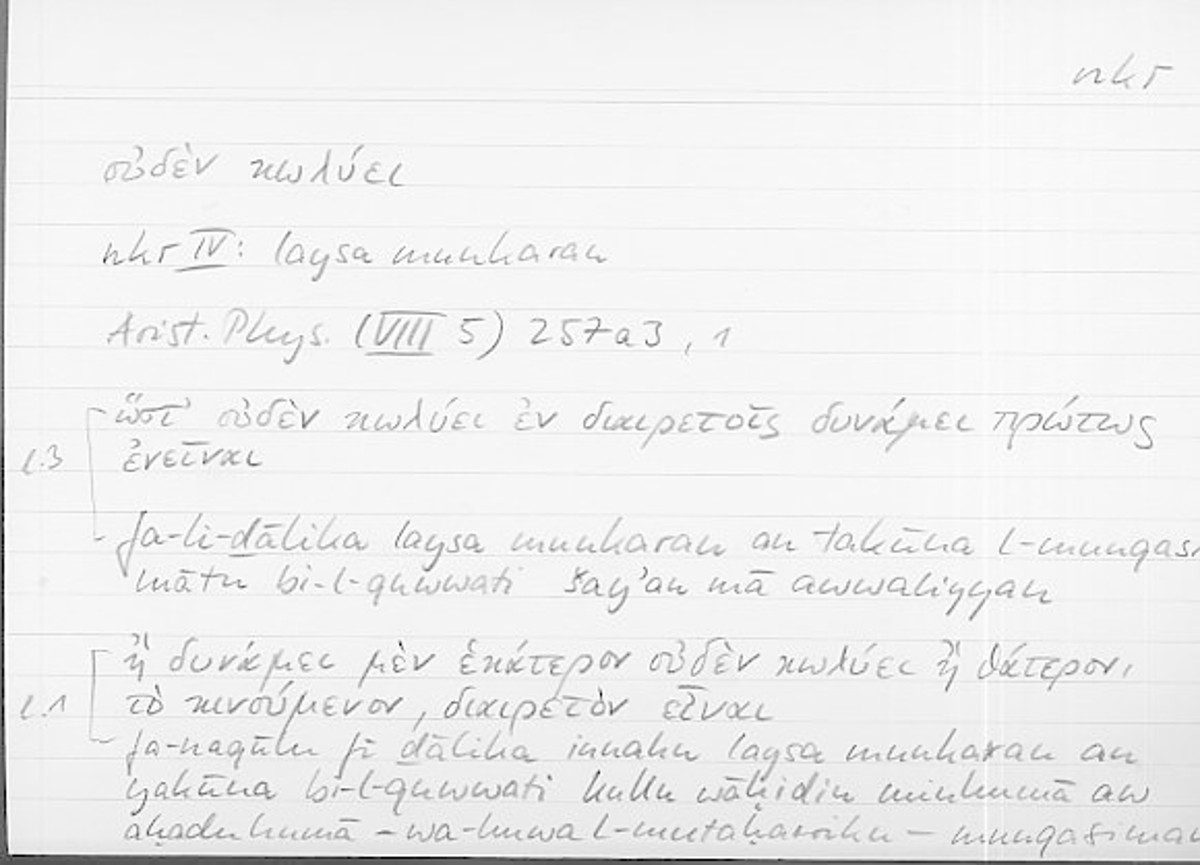 nkr
οὐδὲν κωλύει
nkr IV: laysa munkaran
Arist. Phys. (VIII 5) 257a3, 1
ὥστ' οὐδὲν κωλύει ἐν διαιρετοῖς δυνάμει πρώτως
l.3 ἐνεῖναι
fa-li-ḏālika laysa munkaran an takūna l-munqasi
mātu bi-l-quwwati šay'an mā awwaliyyan
ἢ δυνάμει μὲν ἑκάτερον οὐδὲν κωλύει ἢ θάτερον,
l.1 τὸ κινούμενον, διαιρετὸν εἶναι
fa-naqūlu fī ḏālika innahu laysa munkaran an
yakūna bi-l-quwwati kullu wāḥidin minhumā aw
aḥaduhumā – wa-huwa l-mutaḥarriku – munqasiman